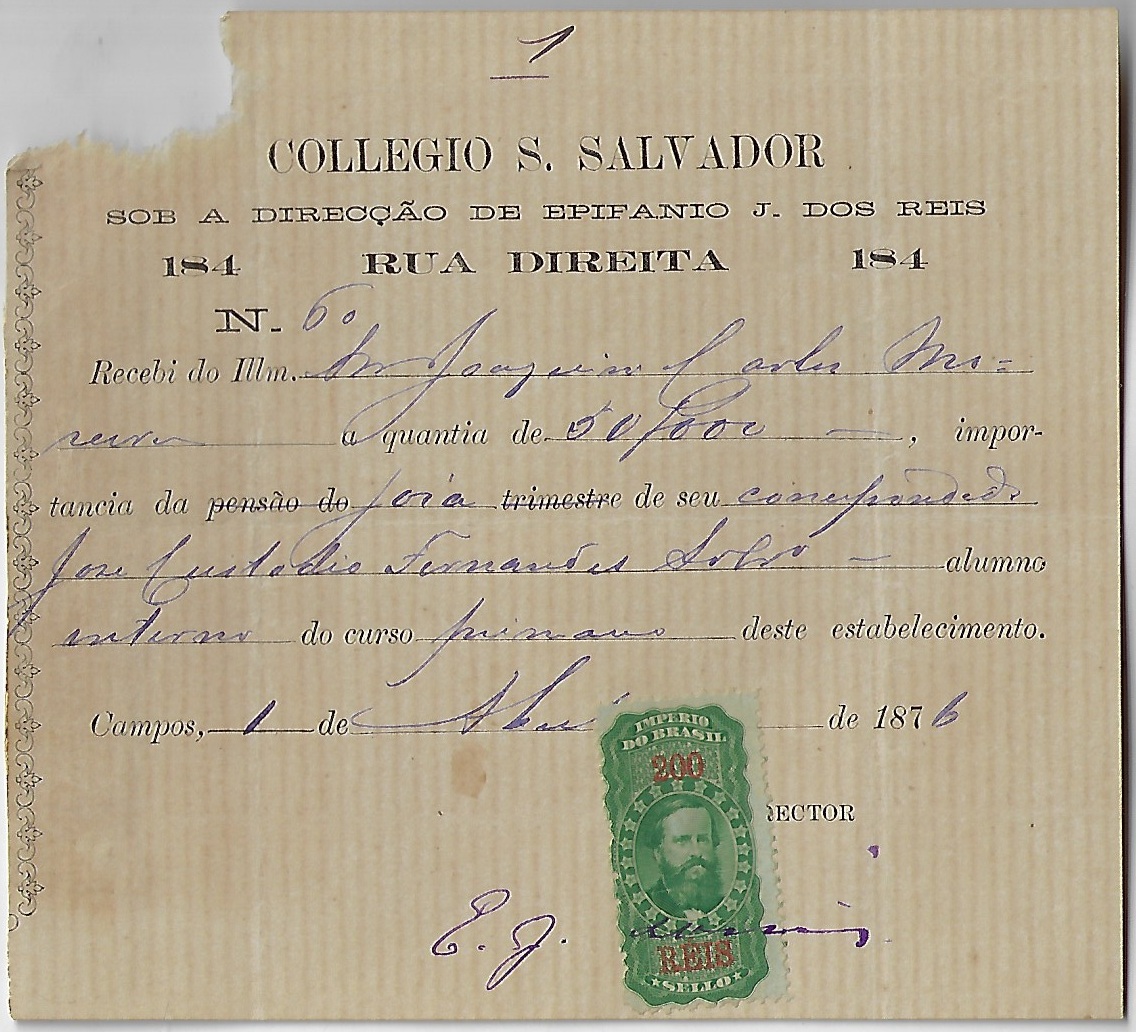 1
COLLEGIO S. SALVADOR
SOB A DIRECÇÃO DE EPIFANIO J. DOS REIS
184 RUA DIREITA 184
N. 60
Recebi do Illm. Snr Joaquim Carlos Mo=
reira a quantia de 50$000 — , impor-
tancia da pensão do joia trimestre de seu
José Custodio Fernandes — alumno
interno do curso primario deste estabelecimento.
Campos, 1 de Abril de 1876
IMPERIO
DO BRASIL
200
RECTOR
E. J. dos Reis
REIS
SELLO